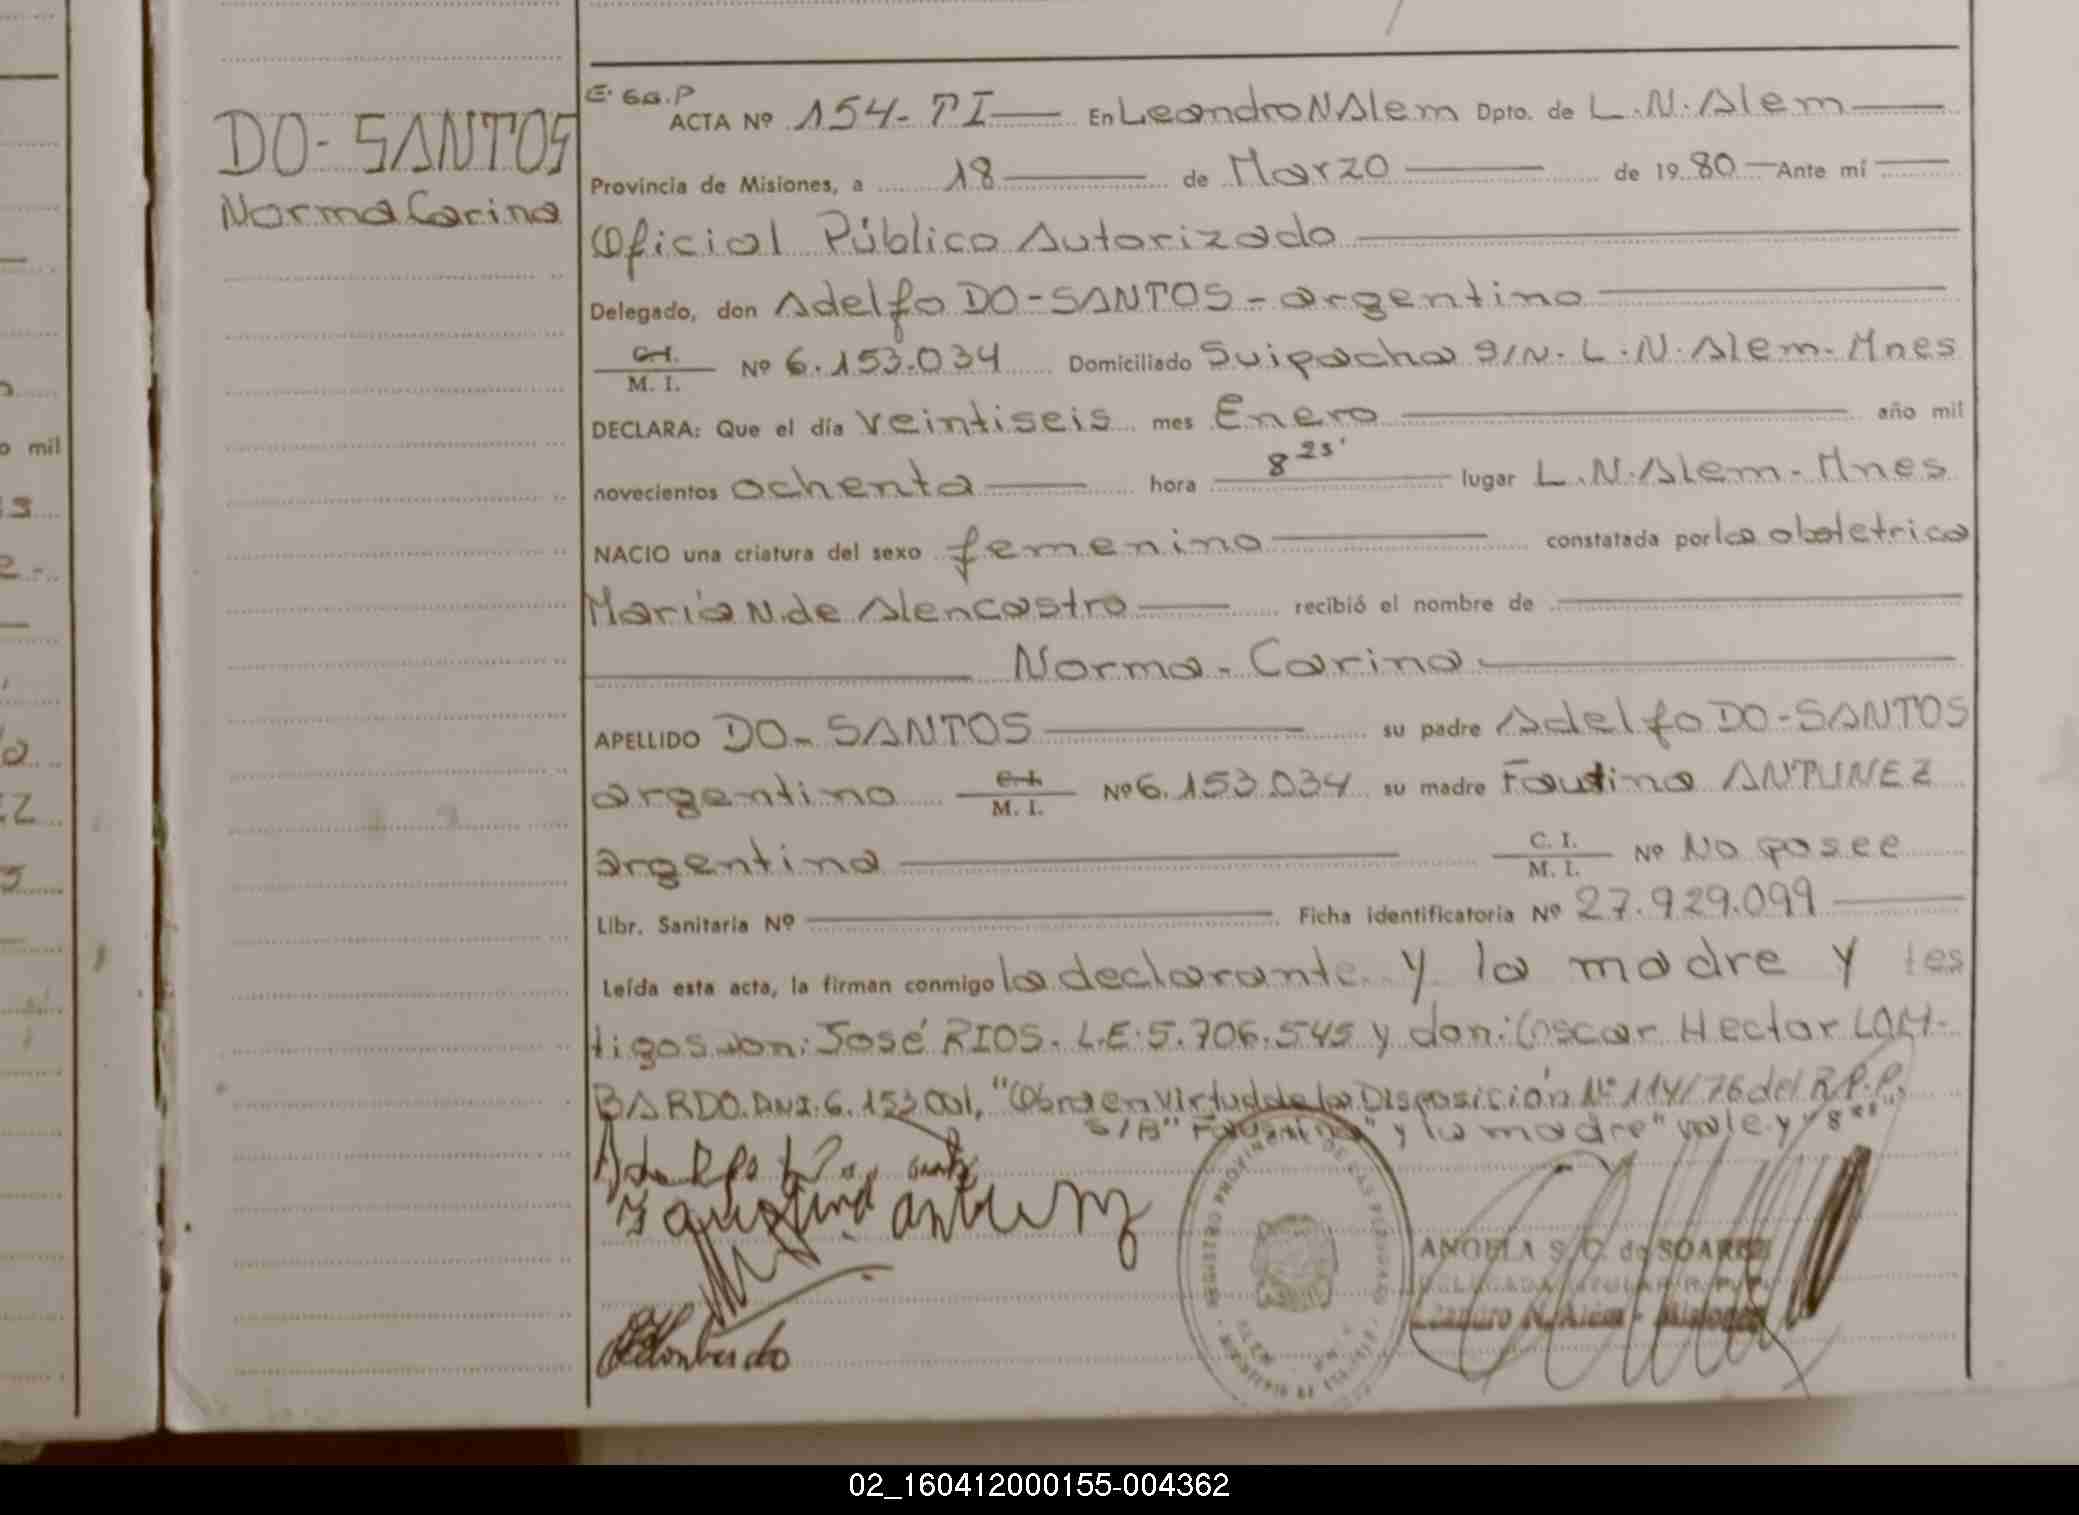 DO-SANTOS
Norma Carina
ACTA Nº 154-TI En Leandro N Alem Dpto. de L.N. Alem
Provincia de Misiones, a 18 de Marzo de 1980 Ante mí
Oficial Público Autorizado
Delegado, don Adelfo DO-SANTOS - argentino
C.I. M. I. Nº 6.153.034 Domiciliado Suipacha S/N. L.N. Alem. Mnes
DECLARA: Que el día veintiseis mes Enero año mil
novecientos ochenta hora 8 25' lugar L.N. Alem - Mnes
NACIO una criatura del sexo femenino constatada por la obstetrica
Maria N. de Alencastro recibió el nombre de
Norma - Carina
APELLIDO DO-SANTOS su padre Adelfo DO-SANTOS
argentino C.I. M. I. Nº 6.153.034 su madre Faustina ANTUNEZ
argentina C. I. M. I. Nº No posee
Libr. Sanitaria Nº Ficha identificatoria Nº 27.929.099
Leída esta acta, la firman conmigo la declarante y la madre y tes
tigos don: José RIOS. L.E. 5.706.545 y don: Oscar Hector LOM-
BARDO. DNI. 6.153.001, "Obra en virtud de la Disposición Nº 114/76 del R.P.P.
S/B "Faustina" y la madre" vale y "8
Faustina antunez
REGISTRO PROVINCIAL DE LAS PERSONAS
ANGELA S. C. de SOAREZ
DELEGADA TITULAR R. P. P.
Leandro N. Alem - Misiones
02_160412000155-004362